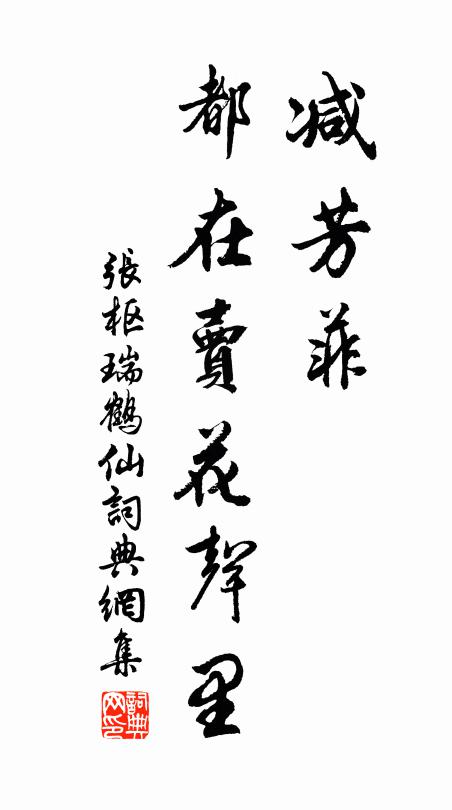 减芳菲
都在賣花聲里
張枢瑞鶴仙詞典網集
詞典网印